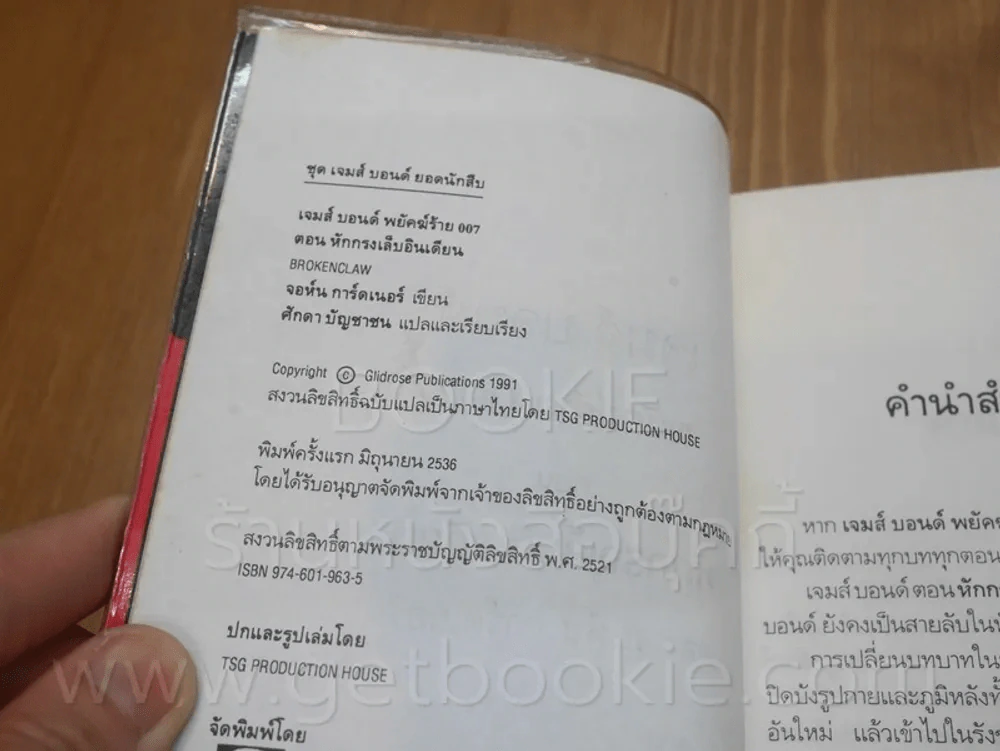 ชุด เจมส์ บอนด์ ยอดนักสืบ
เจมส์ บอนด์ พยัคฆ์ร้าย 007
ตอน หักกรงเล็บอินเดียน
BROKENCLAW
จอห์น การ์ดเนอร์ เขียน
ศักดา บัญชาชน แปลและเรียบเรียง
Copyright © Glidrose Publications 1991
สงวนลิขสิทธิ์ฉบับแปลเป็นภาษาไทยโดย TSG PRODUCTION HOUSE
พิมพ์ครั้งแรก มิถุนายน 2536
โดยได้รับอนุญาตจัดพิมพ์จากเจ้าของลิขสิทธิ์อย่างถูกต้องตามกฎหมาย
สงวนลิขสิทธิ์ตามพระราชบัญญัติลิขสิทธิ์ พ.ศ. 2521
ISBN 974-601-963-5
ปกและรูปเล่มโดย
TSG PRODUCTION HOUSE
จัดพิมพ์โดย
คำนำสำ
หาก เจมส์ บอนด์ พยัค
ให้คุณติดตามทุกบททุกตอน
เจมส์ บอนด์ ตอน หักกร
บอนด์ ยังคงเป็นสายลับใน
การเปลี่ยนบทบาทใน
ปิดบังรูปกายและภูมิหลังทั้
อันใหม่ แล้วเข้าไปในรัง
BOOKIE
ร้านหนังสือบุ๊คกี้
www.getbookie.com